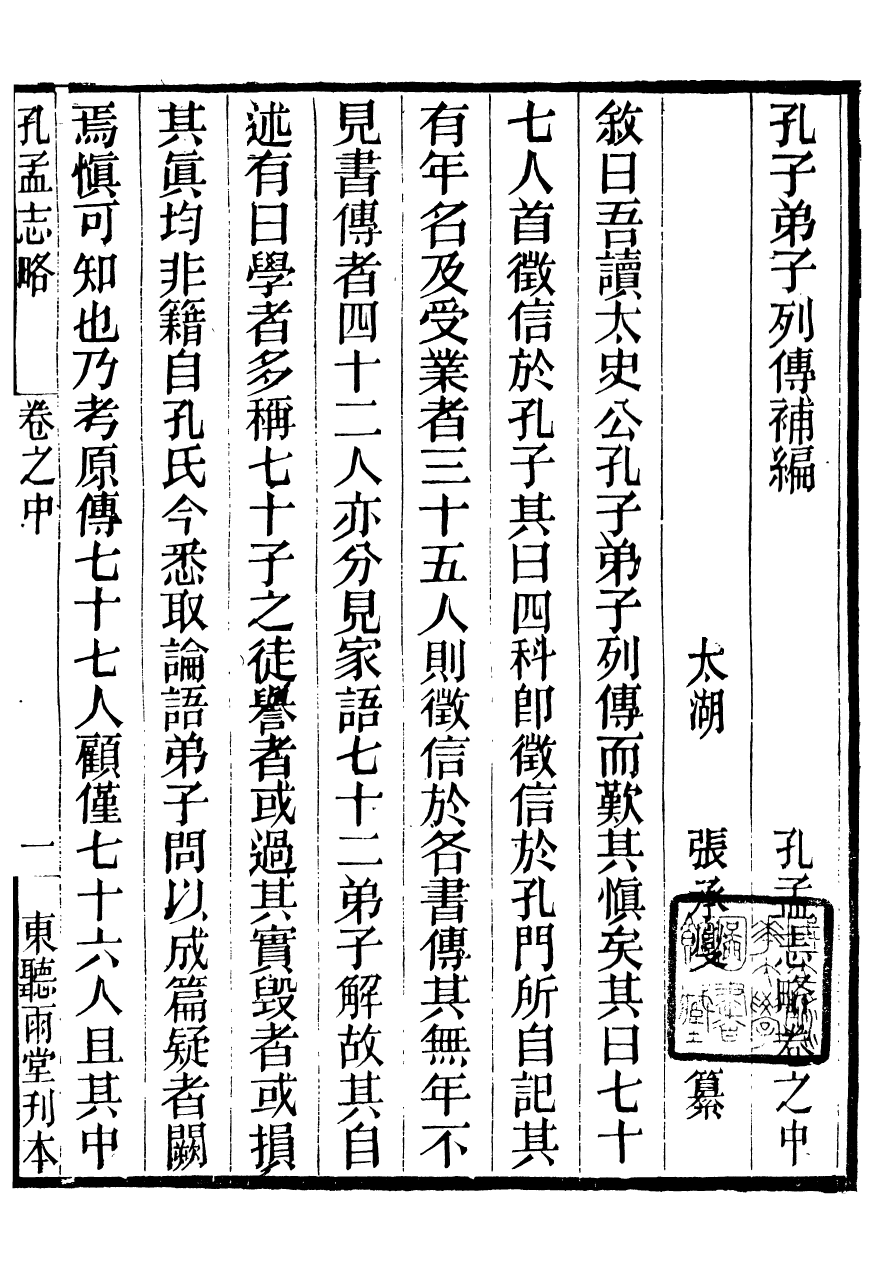 孔子弟子列傳補編 孔孟志略卷之中
太湖 張承燮 纂
敘曰吾讀太史公孔子弟子列傳而歎其愼矣其曰七十
七人首徵信於孔子其曰四科卽徵信於孔門所自記其
有年名及受業者三十五人則徵信於各書傳其無年不
見書傳者四十二人亦分見家語七十二弟子解故其自
述有曰學者多稱七十子之徒譽者或過其實毀者或損
其眞均非籍自孔氏今悉取論語弟子問以成篇疑者闕
焉愼可知也乃考原傳七十七人顧僅七十六人且其中
孔孟志略 卷之中 一 東聽雨堂刊本